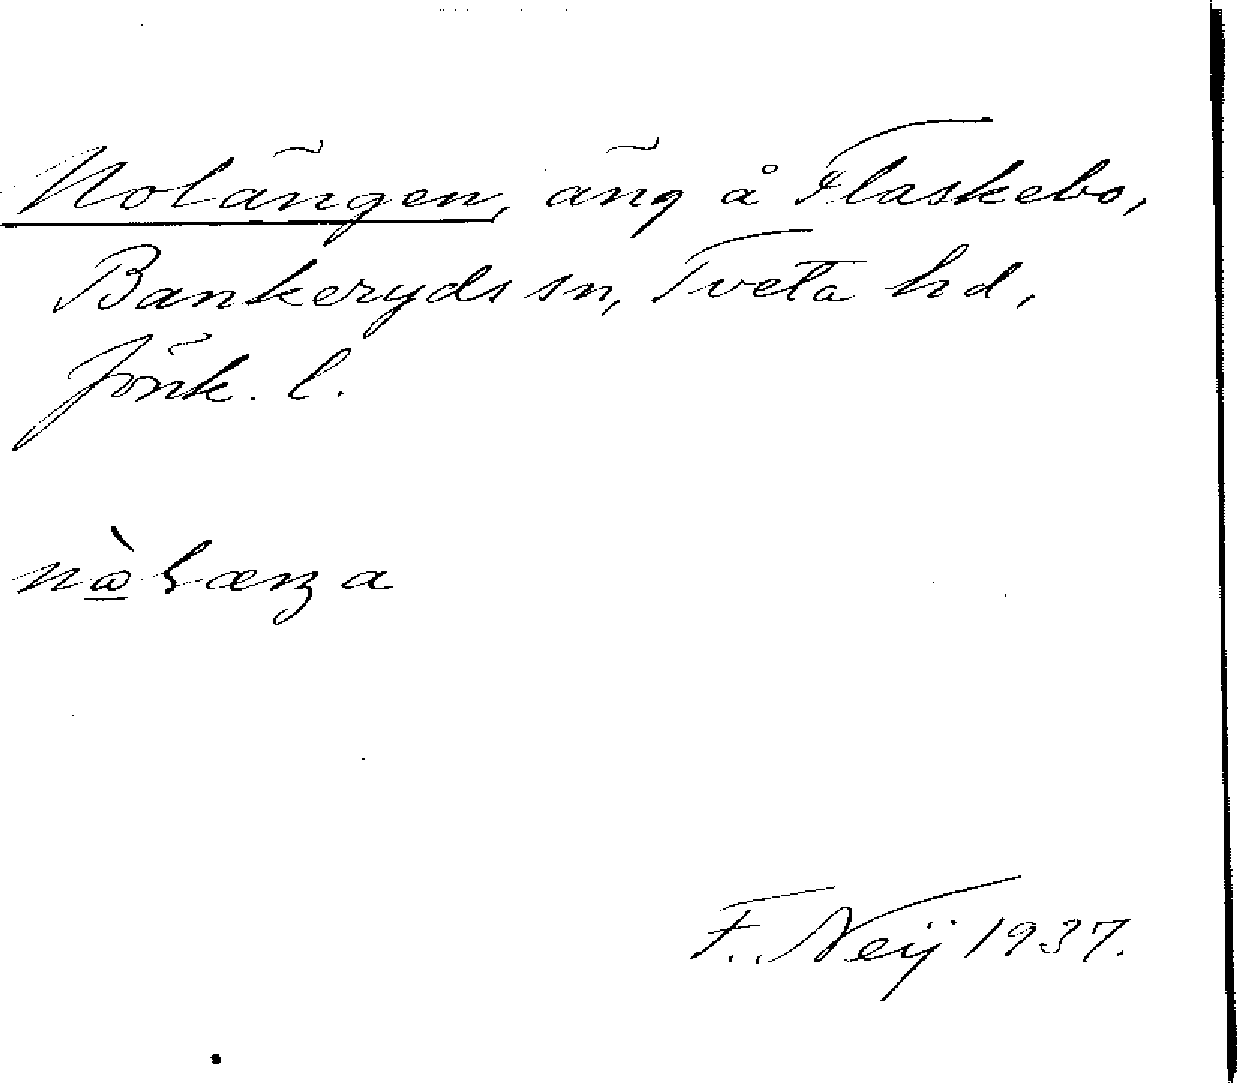 Nolängen, äng å Flaskebo,
Bankeryds sn, Tveta hd,
Jönk. l.
F. Neij 1937.